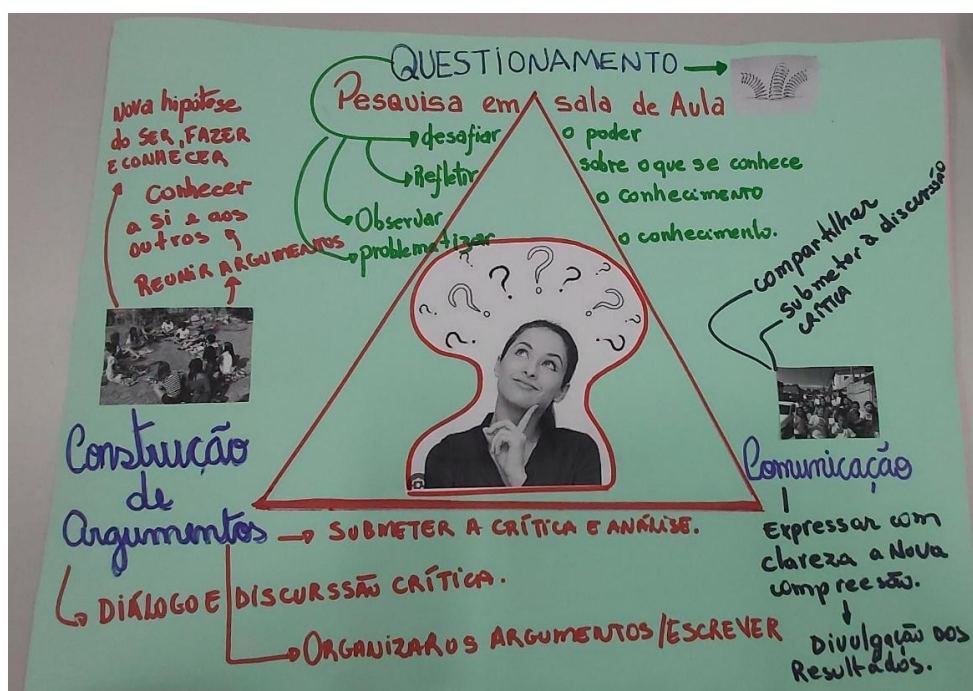 QUESTIONAMENTO
Pesquisa em sala de Aula
desafiar o poder
Refletir sobre o que se conhece
Observar o conhecimento
problematizar o conhecimento.
Nova hipótese
do SER, FAZER
E CONHECER
conhecer
a si e aos
outros
REUNIR ARGUMENTOS
Construção
de
Argumentos
SUBMETER A CRÍTICA E ANÁLISE.
DIÁLOGO E DISCURSSÃO CRÍTICA.
ORGANIZAR OS ARGUMENTOS/ESCREVER
compartilhar
submeter à discussão
CRÍTICA
Comunicação
Expressar com
clareza a Nova
compreesão.
Divulgação dos
Resultados.